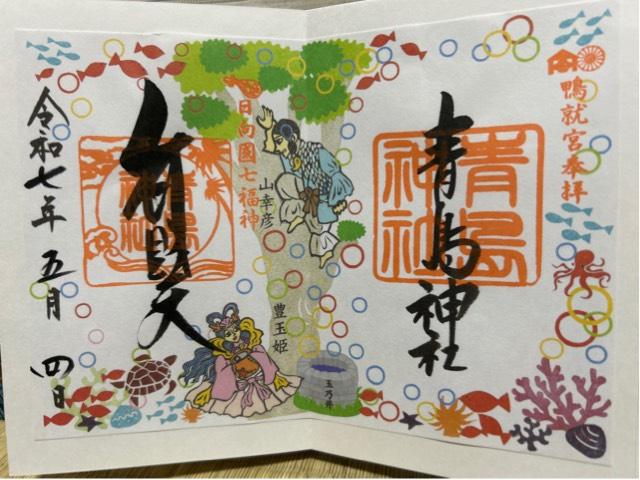 鴨就宮奉拝
青島神社
青島
神社
日向國七福神
山幸彦
豊玉姫
玉乃井
弁財天
青島
神社
令和七年 五月 四日